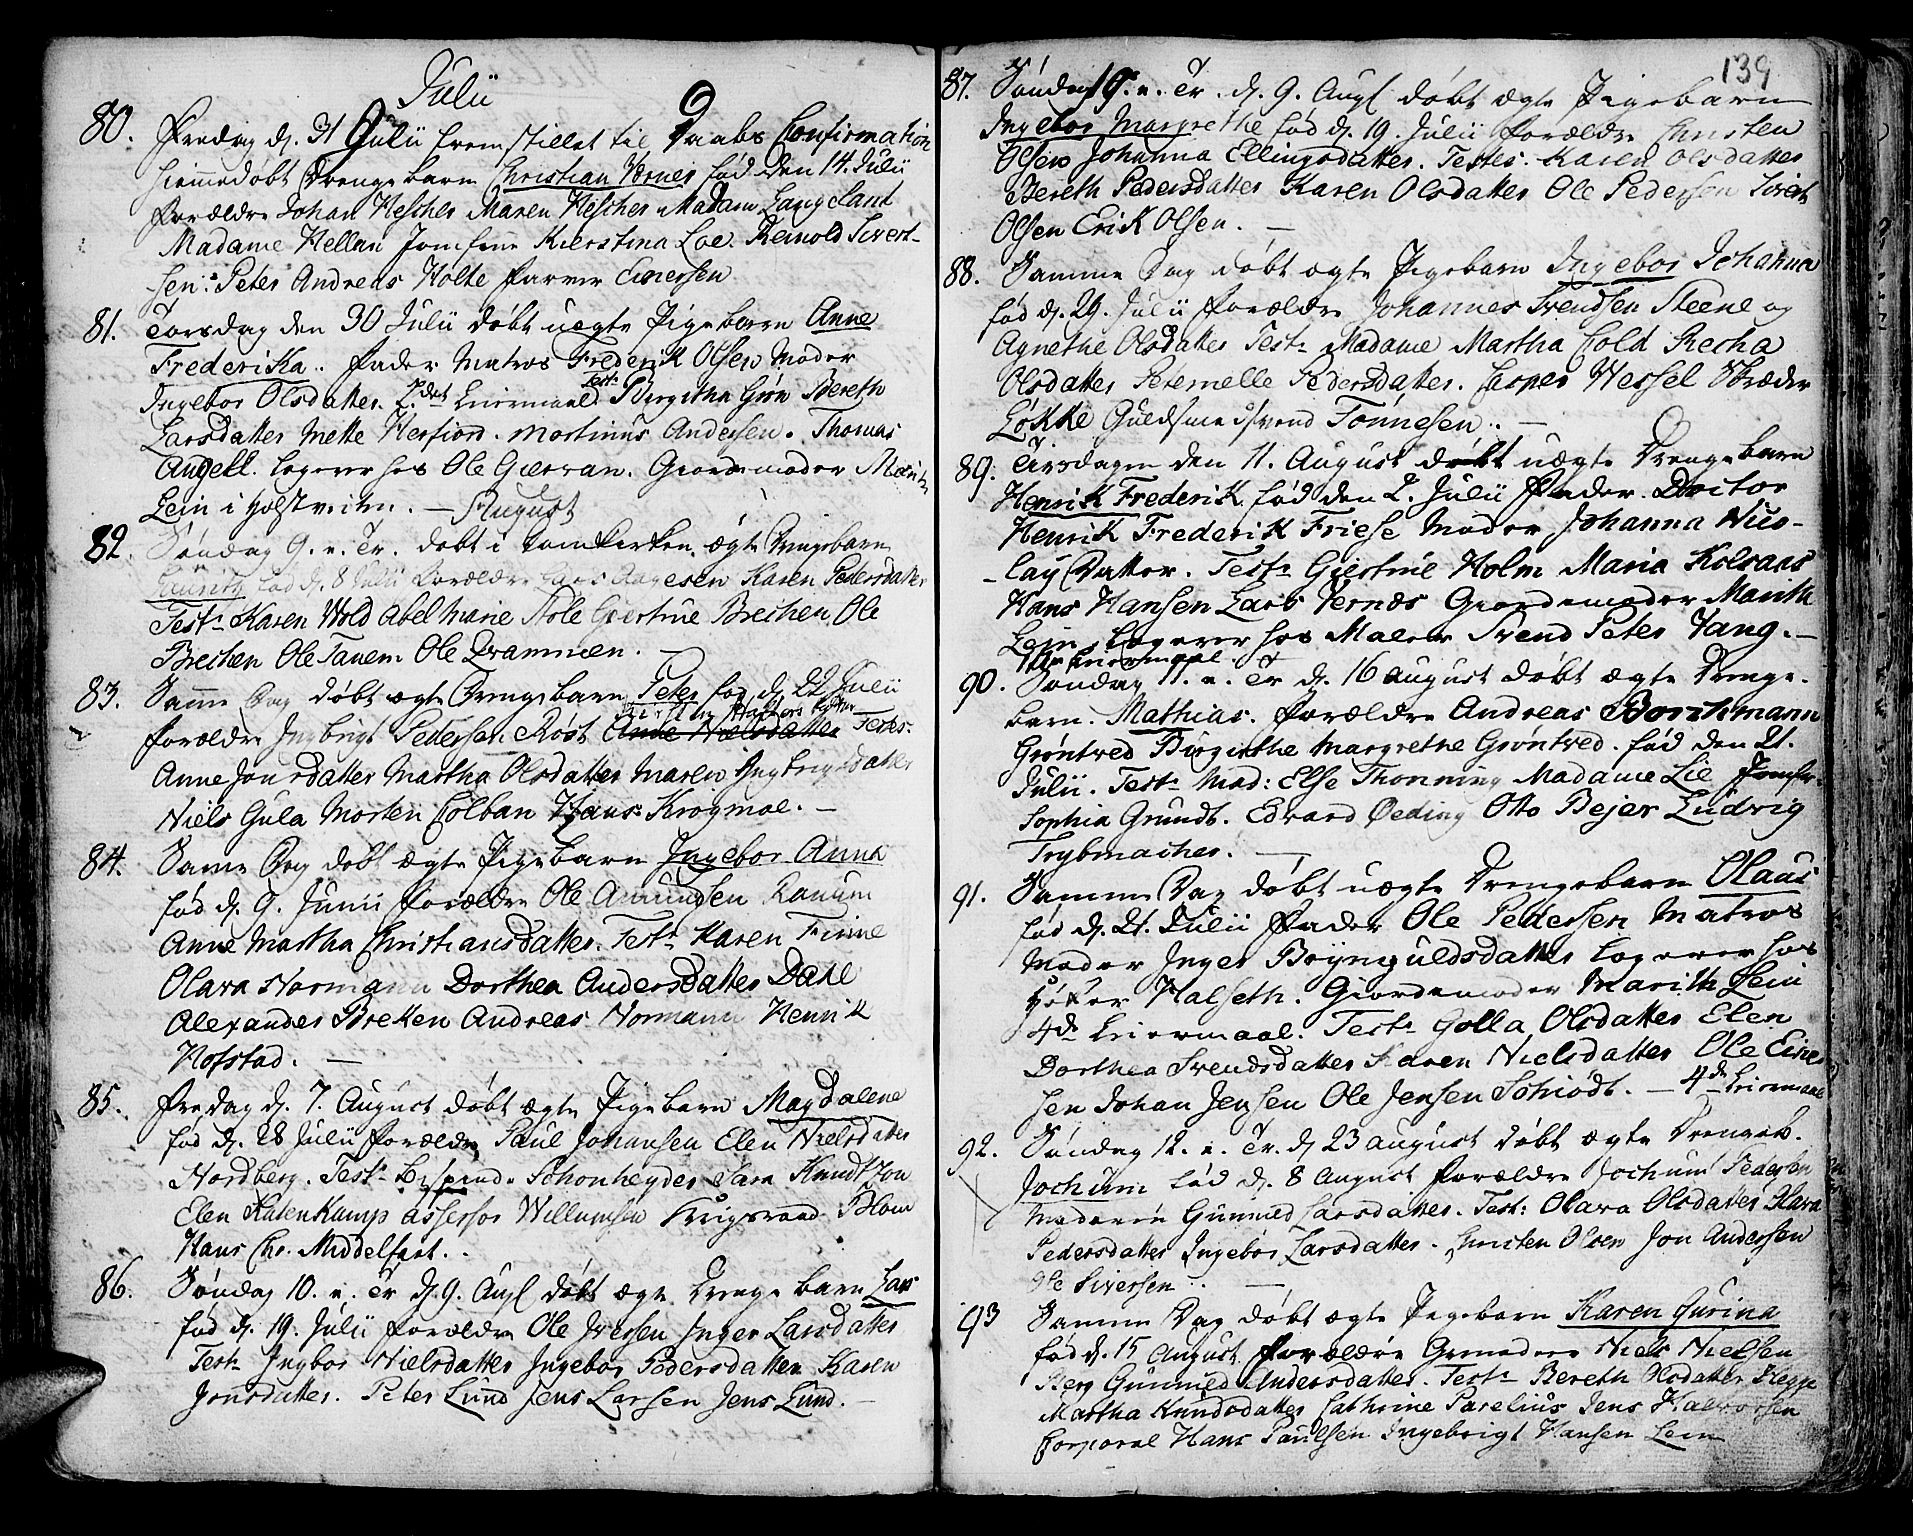 Julii
80. Fredag d. 31 Julii fremstillet til Daabs Confirmation
hiemmedøbt Drengebarn Christian Wernes fød den 14. Julii
Forældre Johan Hescher Maren Hescher. Madam Lange
Madame Hellan Jomfrue Kierstina Loe. Reinold Sivert-
sen. Peter Andreas Holte Farver Einersen
81. Torsdag den 30 Julii døbt uægte Pigebarn Anne
Frederika. Fader Matros Frederik Olsen Moder
Ingebor Olsdatter. 2det Leiermaal Test: Birgitha Grøn Bereth
Larsdatter Mette Herfiord. Mortinus Andersen. Thomas
Angell. logerer hos Ole Giervan. Giordemoder Marith
Lein i Holstveiten. —
August
82. Søndag 9. p. Tr. døbt i Domkirken ægte Drengebarn
fød d. 8 Julii Forældre Lars Aagesen Karen Pedersdatter
Test: Karen Wold Abel Marie Stole Giertrue Brechen Ole
Brechen Ole Tanem Ole Drammen. —
83. Samme Dag døbt ægte Drengebarn Peter fød d. 22 Julii
Forældre Ingbrigt Pedersen Røst Anne Nielsdatter Testes.
Anne Jonsdatter Martha Olsdatter Maren Ingbrigtsdatter
Niels Gula Morten Colban Hans Krogmoe. —
84. Samme Dag døbt ægte Pigebarn Ingebor Anna
fød d. 9. Junii Forældre Ole Amundsen Ranum
Anne Martha Christiansdatter. Test: Karen Finne
Olava Normann Dorthea Andersdatter Dahl
Alexander Brekken Andreas Normann Henrik
Hofstad. —
85. Fredag d. 7. August døbt ægte Pigebarn Magdalene
fød d. 28 Julii Forældre Paul Johansen Elen Nielsdatter
Nordberg. Test: Bispinde Schonheyder Sara Knudtzon
Elen Katenkamp Assessor Willumsen Krigsraad Blom
Hans Chr. Middelfart.
86. Søndag 10. p. Tr. d. 9. Aug døbt ægte Drenge barn Lars
fød d. 19. Julii Forældre Ole Iversen Inger Larsdatter
Test: Ingbor Nielsdatter Ingebor Pedersdatter Karen
Jonsdatter. Peter Lund Jens Larsen Jens Lund. —
139
87. Søndag 10. p. Tr. d. 9. Aug døbt ægte Pigebarn
Ingebor Margrethe fød d. 19. Julii Forældre Christen
Olsen Johanna Ellingsdatter. Testes. Karen Olsdatter
Bereth Pedersdatter Karen Olsdatter Ole Pedersen Sivert
Olsen Erik Olsen. —
88. Samme Dag døbt ægte Pigebarn Ingebor Johanna
fød d. 29. Julii Forældre Johannes Svendsen Steene og
Agnethe Olsdatter Test: Madame Martha Cold Recha
Olsdatter Peternelle Pedersdatter. Casper Wessel Skræder
Løkke Guldsmedsvend Tønnesen. —
89. Tirsdagen den 11. August døbt uægte Drengebarn
Henrik Frederik fød den 2. Julii Fader. Doctor
Henrik Frederik Friese Moder Johanna Nico-
lay Datter. Test: Giertrue Holm Maria Kolsaas
Hans Hansen Lars Vernæs Giordemoder Marith
Lein. Logerer hos Maler Svend Peter Vang. —
1ste Leiermaal.
90. Søndag 11. p. Tr d. 16 august døbt ægte Drenge-
barn. Mathias. Forældre Andreas Borchmann
Grøntved Birgitthe Margrethe Grøntved. fød den 21.
Julii. Test: Mad: Else Thonning Madame Lie Jomfr.
Sophia Grundt. Edvard Øeding Otto Bejer Ludvig
Trybmacher. —
91. Samme Dag døbt uægte Drengebarn Olaus
fød d. 21. Julii Fader Ole Pedersen Matros
Moder Inger Brynguldsdatter logerer hos
Høker Halseth. Giordemoder Marith Lein
4de Leiermaal. Test: Golla Olsdatter Elen
Dorthea Svendsdatter Karen Nielsdatter Ole Einer
sen Johan Jensen Ole Jensen Schiødt. — 4de Leiermaal
92. Søndag 12. p. Tr. d. 23 august døbt ægte Drengeb.
Jochum fød d. 8 August Forældre Jochum Pedersen
Moderen Gunnild Larsdatter. Test: Olava Olsdatter Olava
Pedersdatter Ingebor Larsdatter. Christen Olsen Jon Andersen
Ole Siversen. —
93 Samme Dag døbt ægte Pigebarn Karen Gurina
fød d. 15 August Forældre Grenadeer Niels Nielsen
Berg Gunnild Andersdatter. Test: Bereth Olsdatter Hegge
Martha Knudsdatter Cathrine Parelius Jens Halvorsen
Corporal Hans Paulsen Ingebrigt Hansen Lein